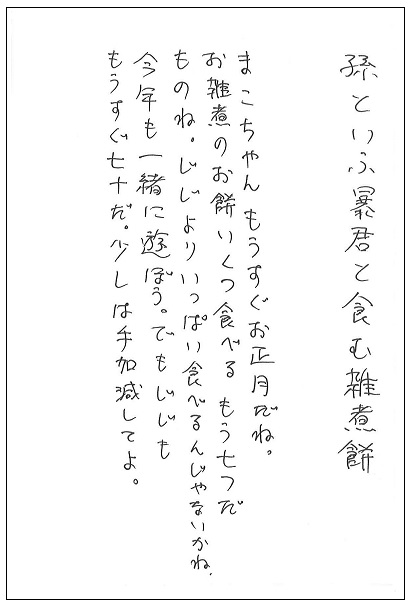 孫といふ暴君と食む雑煮餅
まこちゃん もうすぐお正月だね。
お雑煮のお餅いくつ食べる もう七つだ
ものね。じじよりいっぱい食べるんじゃないかね。
今年も一緒に遊ぼう。でもじじも
もうすぐ七十だ。少しは手加減してよ。